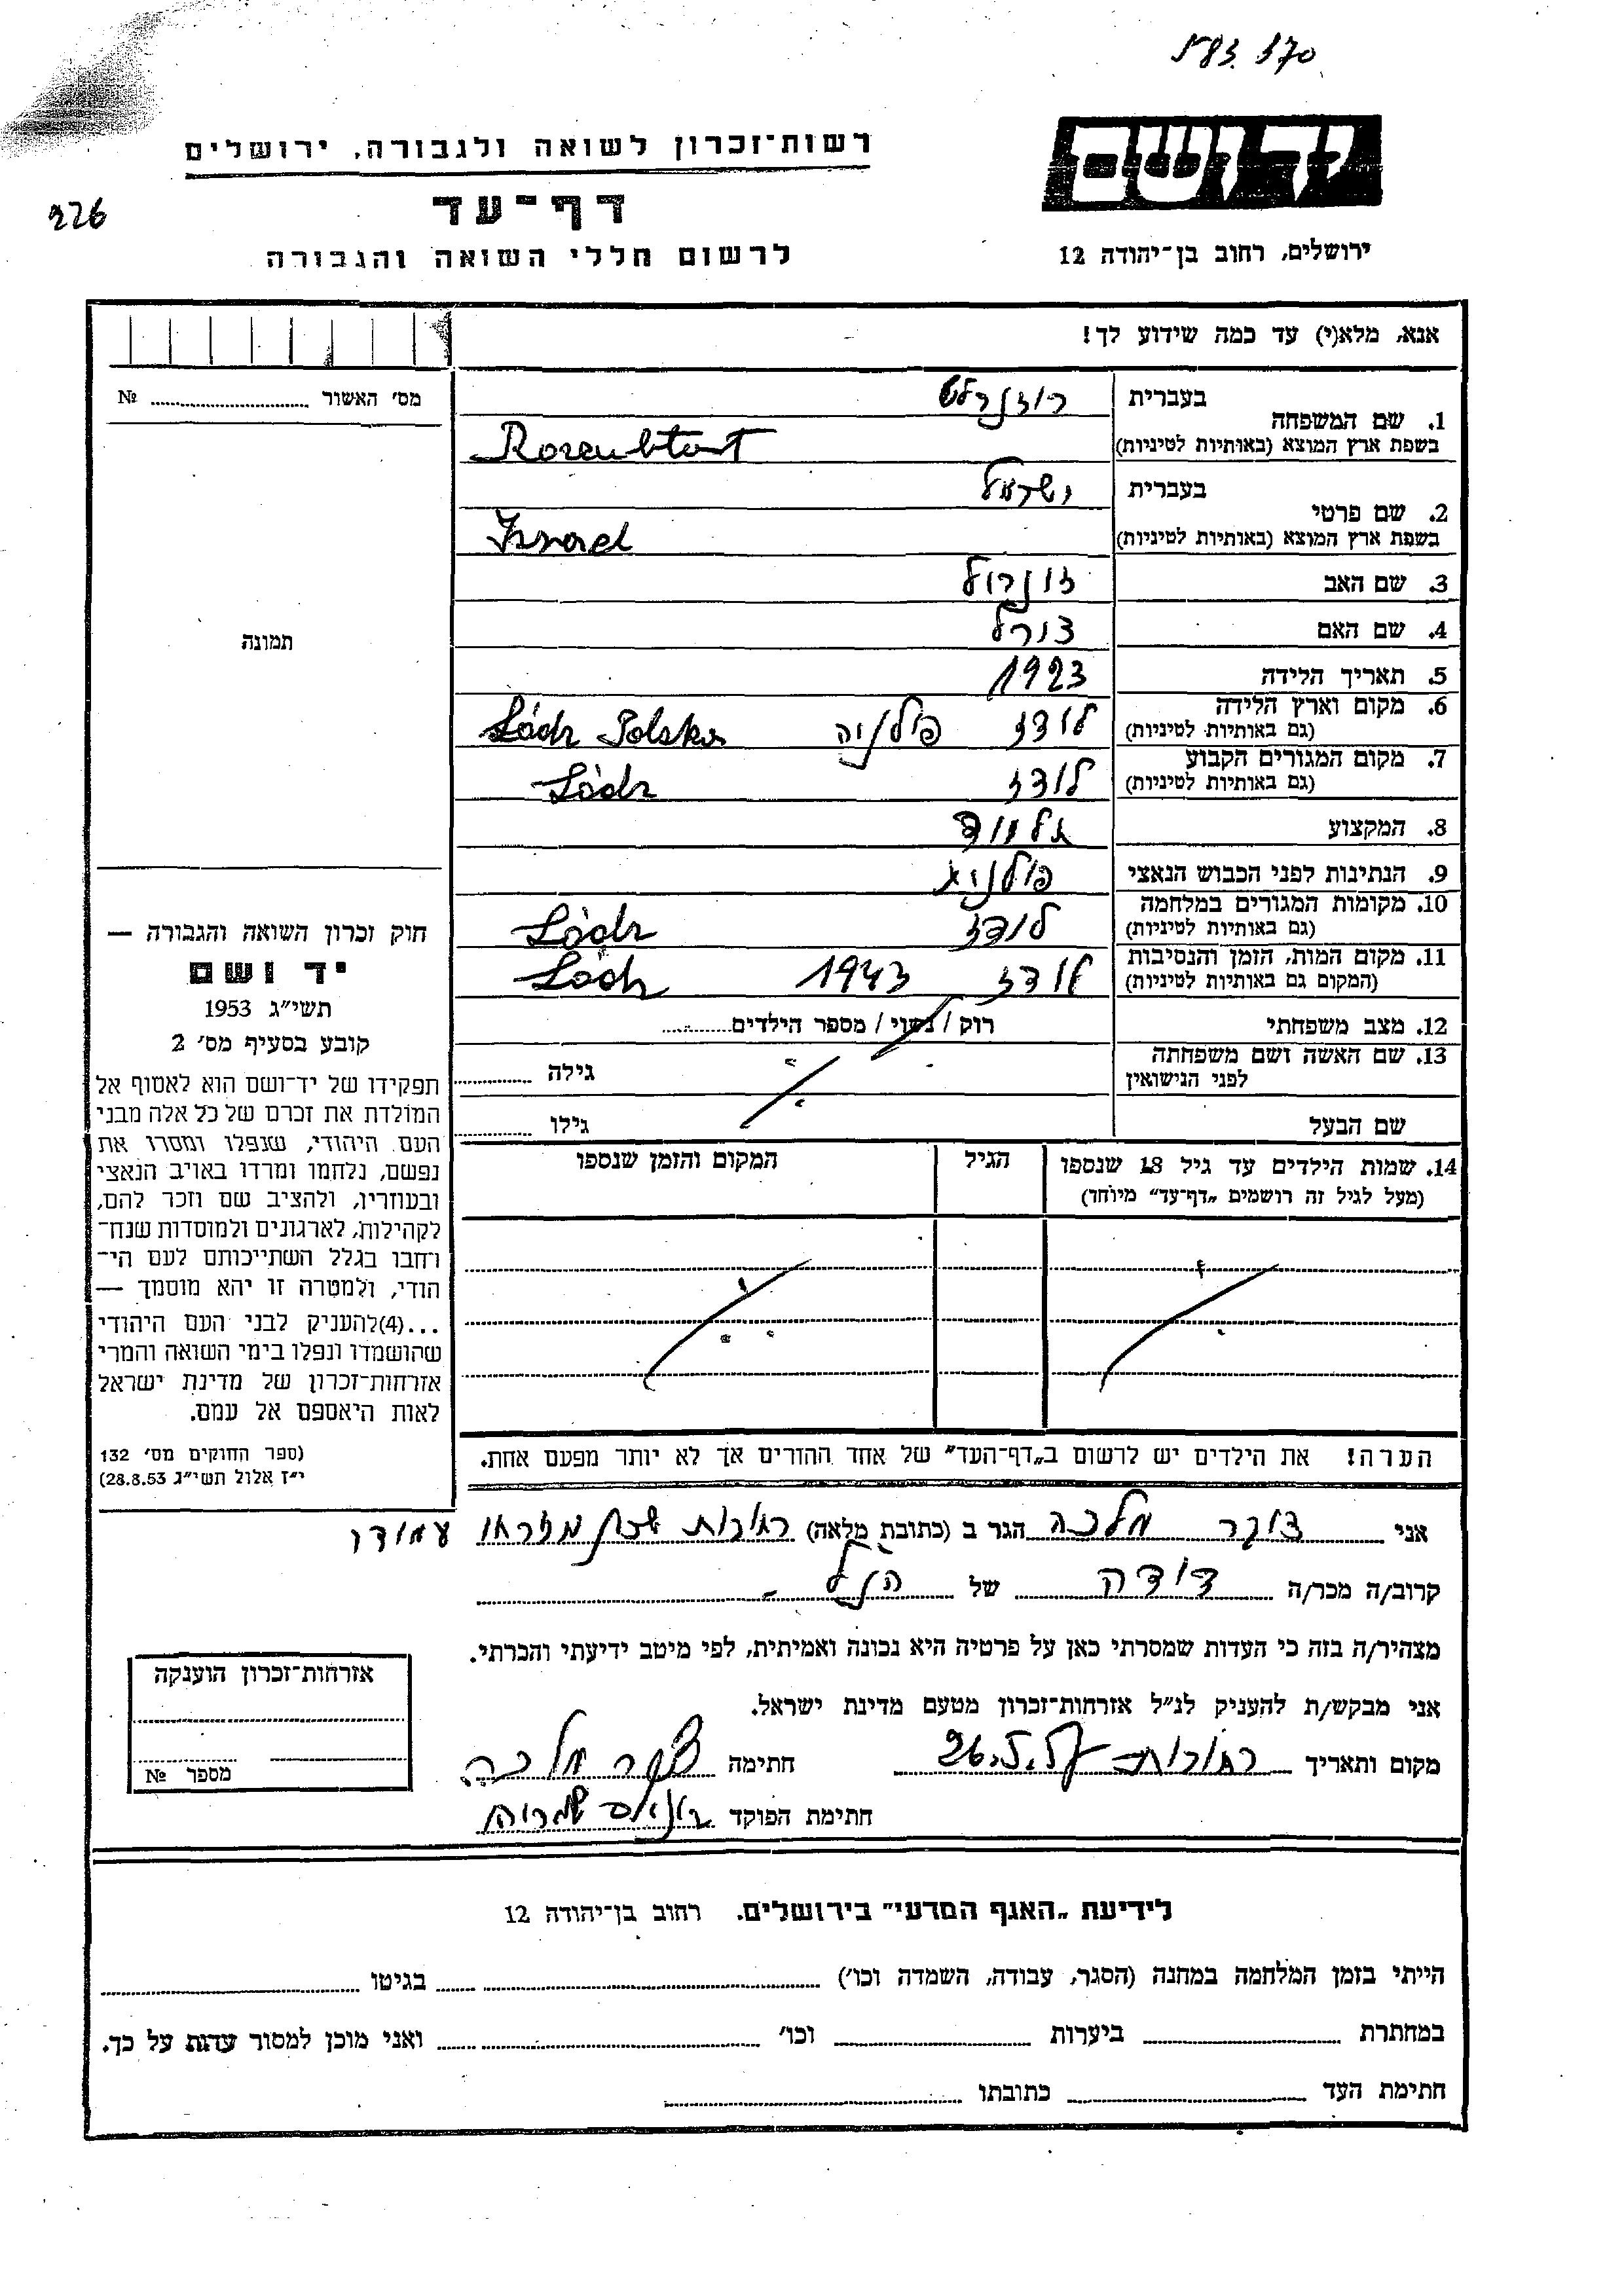 583.370
יד ושם
רשות־זכרון לשואה ולגבורה, ירושלים
דף־עד
226
לרשום חללי השואה והגבורה
ירושלים, רחוב בן־יהודה 12
אנא, מלא(י) עד כמה שידוע לך!
מס׳ האשור ........ №
תמונה
חוק זכרון השואה והגבורה —
יד ושם
תשי״ג 1953
קובע בסעיף מס׳ 2
תפקידו של יד־ושם הוא לאסוף אל
המולדת את זכרם של כל אלה מבני
העם היהודי, שנפלו ומסרו את
נפשם, נלחמו ומרדו באויב הנאצי
ובעוזריו, ולהציב שם וזכר להם,
לקהילות, לארגונים ולמוסדות שנח־
רחבו בגלל השתייכותם לעם הי־
הודי, ולמטרה זו יהא מוסמך —
...(4)להעניק לבני העם היהודי
שהושמדו ונפלו בימי השואה והמרי
אזרחות־זכרון של מדינת ישראל
לאות היאספם אל עמם.
(ספר החוקים מס׳ 132
י״ז אלול תשי״ג 28.8.53)
1. שם המשפחה
בעברית רוזנבלט
בשפת ארץ המוצא (באותיות לטיניות) Rosenblat
2. שם פרטי
בעברית ישראל
בשפת ארץ המוצא (באותיות לטיניות) Israel
3. שם האב
4. שם האם
5. תאריך הלידה 1923
6. מקום וארץ הלידה
(גם באותיות לטיניות) לודז פולניה Łódz Polska
7. מקום המגורים הקבוע
(גם באותיות לטיניות) לודז Łódz
8. המקצוע
9. הנתינות לפני הכבוש הנאצי פולנית
10. מקומות המגורים במלחמה
(גם באותיות לטיניות) לודז Łódz
11. מקום המות, הזמן והנסיבות
(המקום גם באותיות לטיניות) לודז 1943 Łódz
12. מצב משפחתי רוק / נשוי / מספר הילדים........
13. שם האשה ושם משפחתה
לפני הנישואין גילה ........
שם הבעל גילו ........
14. שמות הילדים עד גיל 18 שנספו הגיל המקום והזמן שנספו
(מעל לגיל זה רושמים „דף־עד״ מיוחד)
הערה! את הילדים יש לרשום ב„דף־העד״ של אחד ההורים אך לא יותר מפעם אחת.
אני צוקר מלכה הגר ב (כתובת מלאה) רחובות
קרוב/ה מכר/ה דודה של הנ״ל
מצהיר/ה בזה כי העדות שמסרתי כאן על פרטיה היא נכונה ואמיתית, לפי מיטב ידיעתי והכרתי.
אני מבקש/ת להעניק לנ״ל אזרחות־זכרון מטעם מדינת ישראל.
מקום ותאריך רחובות 26.5. חתימה צוקר מלכה
חתימת הפוקד
אזרחות־זכרון הוענקה
מספר №
לידיעת „האגף המדעי״ בירושלים. רחוב בן־יהודה 12
הייתי בזמן המלחמה במחנה (הסגר, עבודה, השמדה וכו׳) ........ בגיטו ........
במחתרת ........ ביערות ........ וכו׳ ........ ואני מוכן למסור עדות על כך.
חתימת העד ........ כתובתו ........